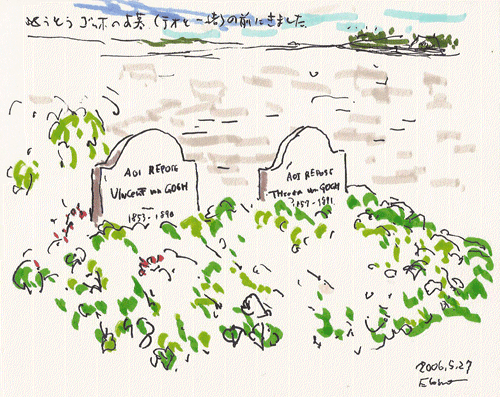 とうとうゴッホのお墓（テオと一緒）の前にきました
AOI REPOSE
VINCENT van GOGH
1853-1890
AOI REPOSE
THEODOR van GOGH
1857-1891
2006.5.27